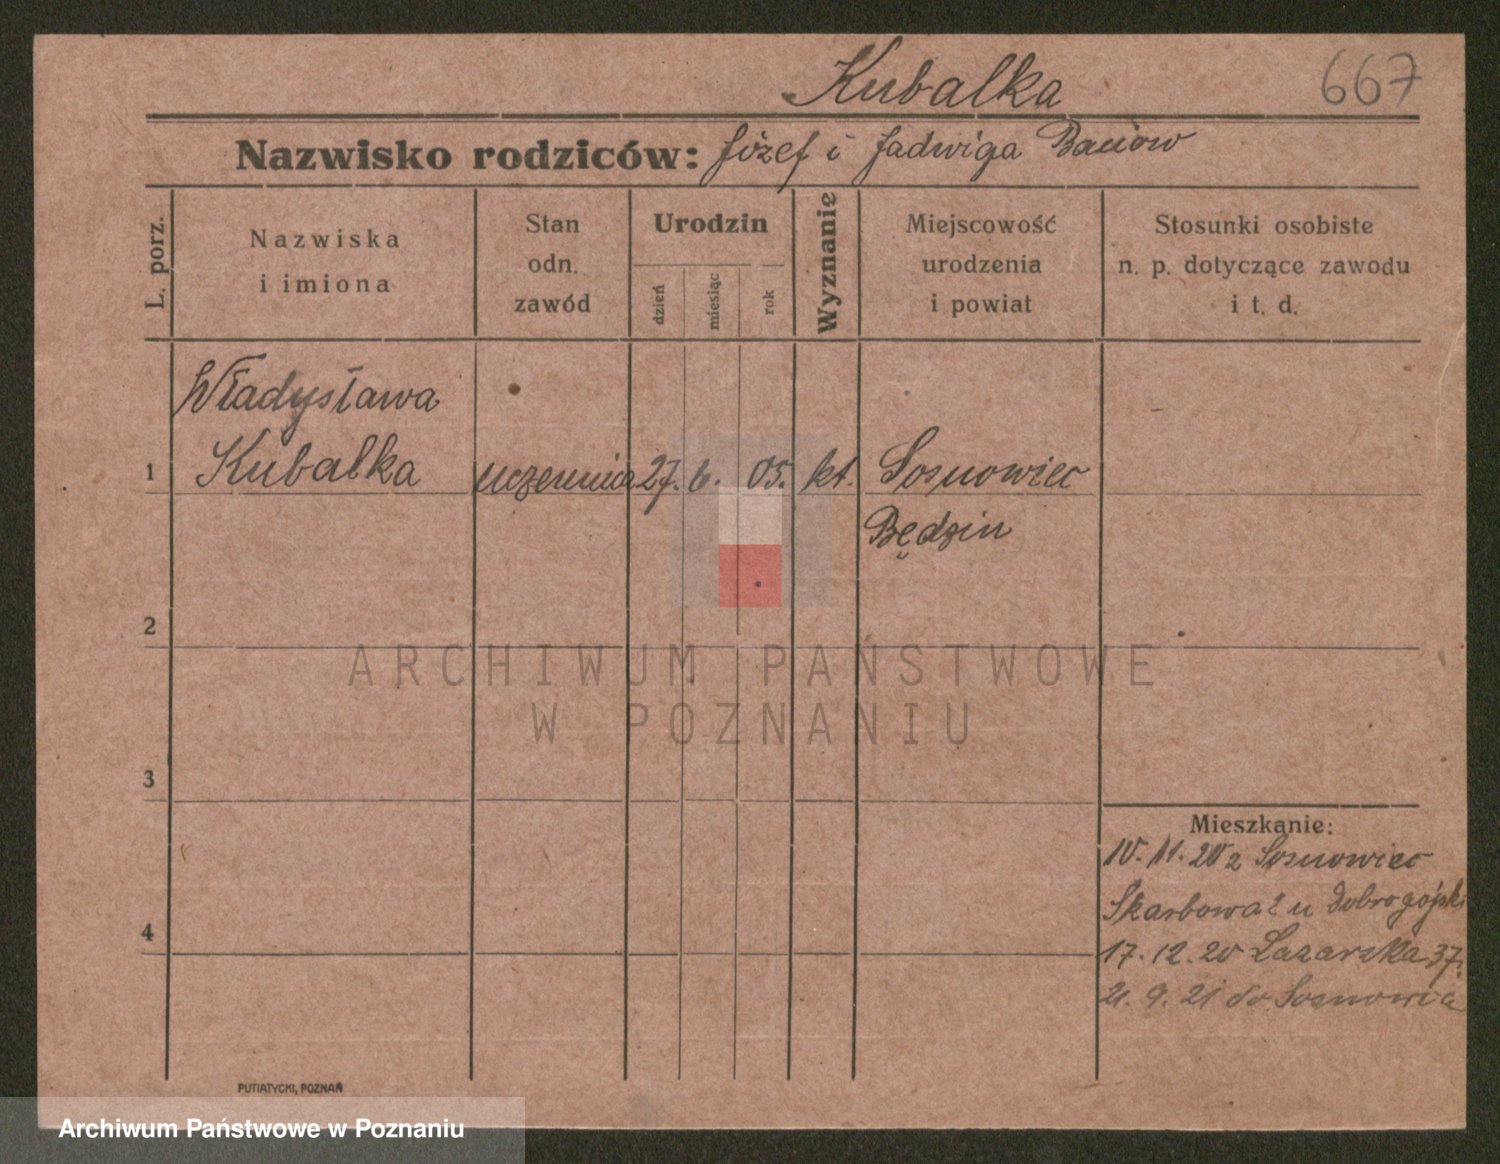 Kubalka 667
Nazwisko rodziców: Józef i Jadwiga
L. porz.
Nazwiska
i imiona
Stan
odn.
zawód
Urodzin
dzień
miesiąc
rok
Wyznanie
Miejscowość
urodzenia
i powiat
Stosunki osobiste
n. p. dotyczące zawodu
i t. d.
Władysława
1 Kubalka uczennica 27. 6. 05. kt. Sosnowiec
Będzin
2
ARCHIWUM PAŃSTWOWE
W POZNANIU
3
Mieszkanie:
11. 20 z Sosnowiec
u Dobrogojski
4
17. 12. 20 Łazarska 37.
21. 9. 21 do Sosnowca
PUTIATYCKI, POZNAŃ
Archiwum Państwowe w Poznaniu